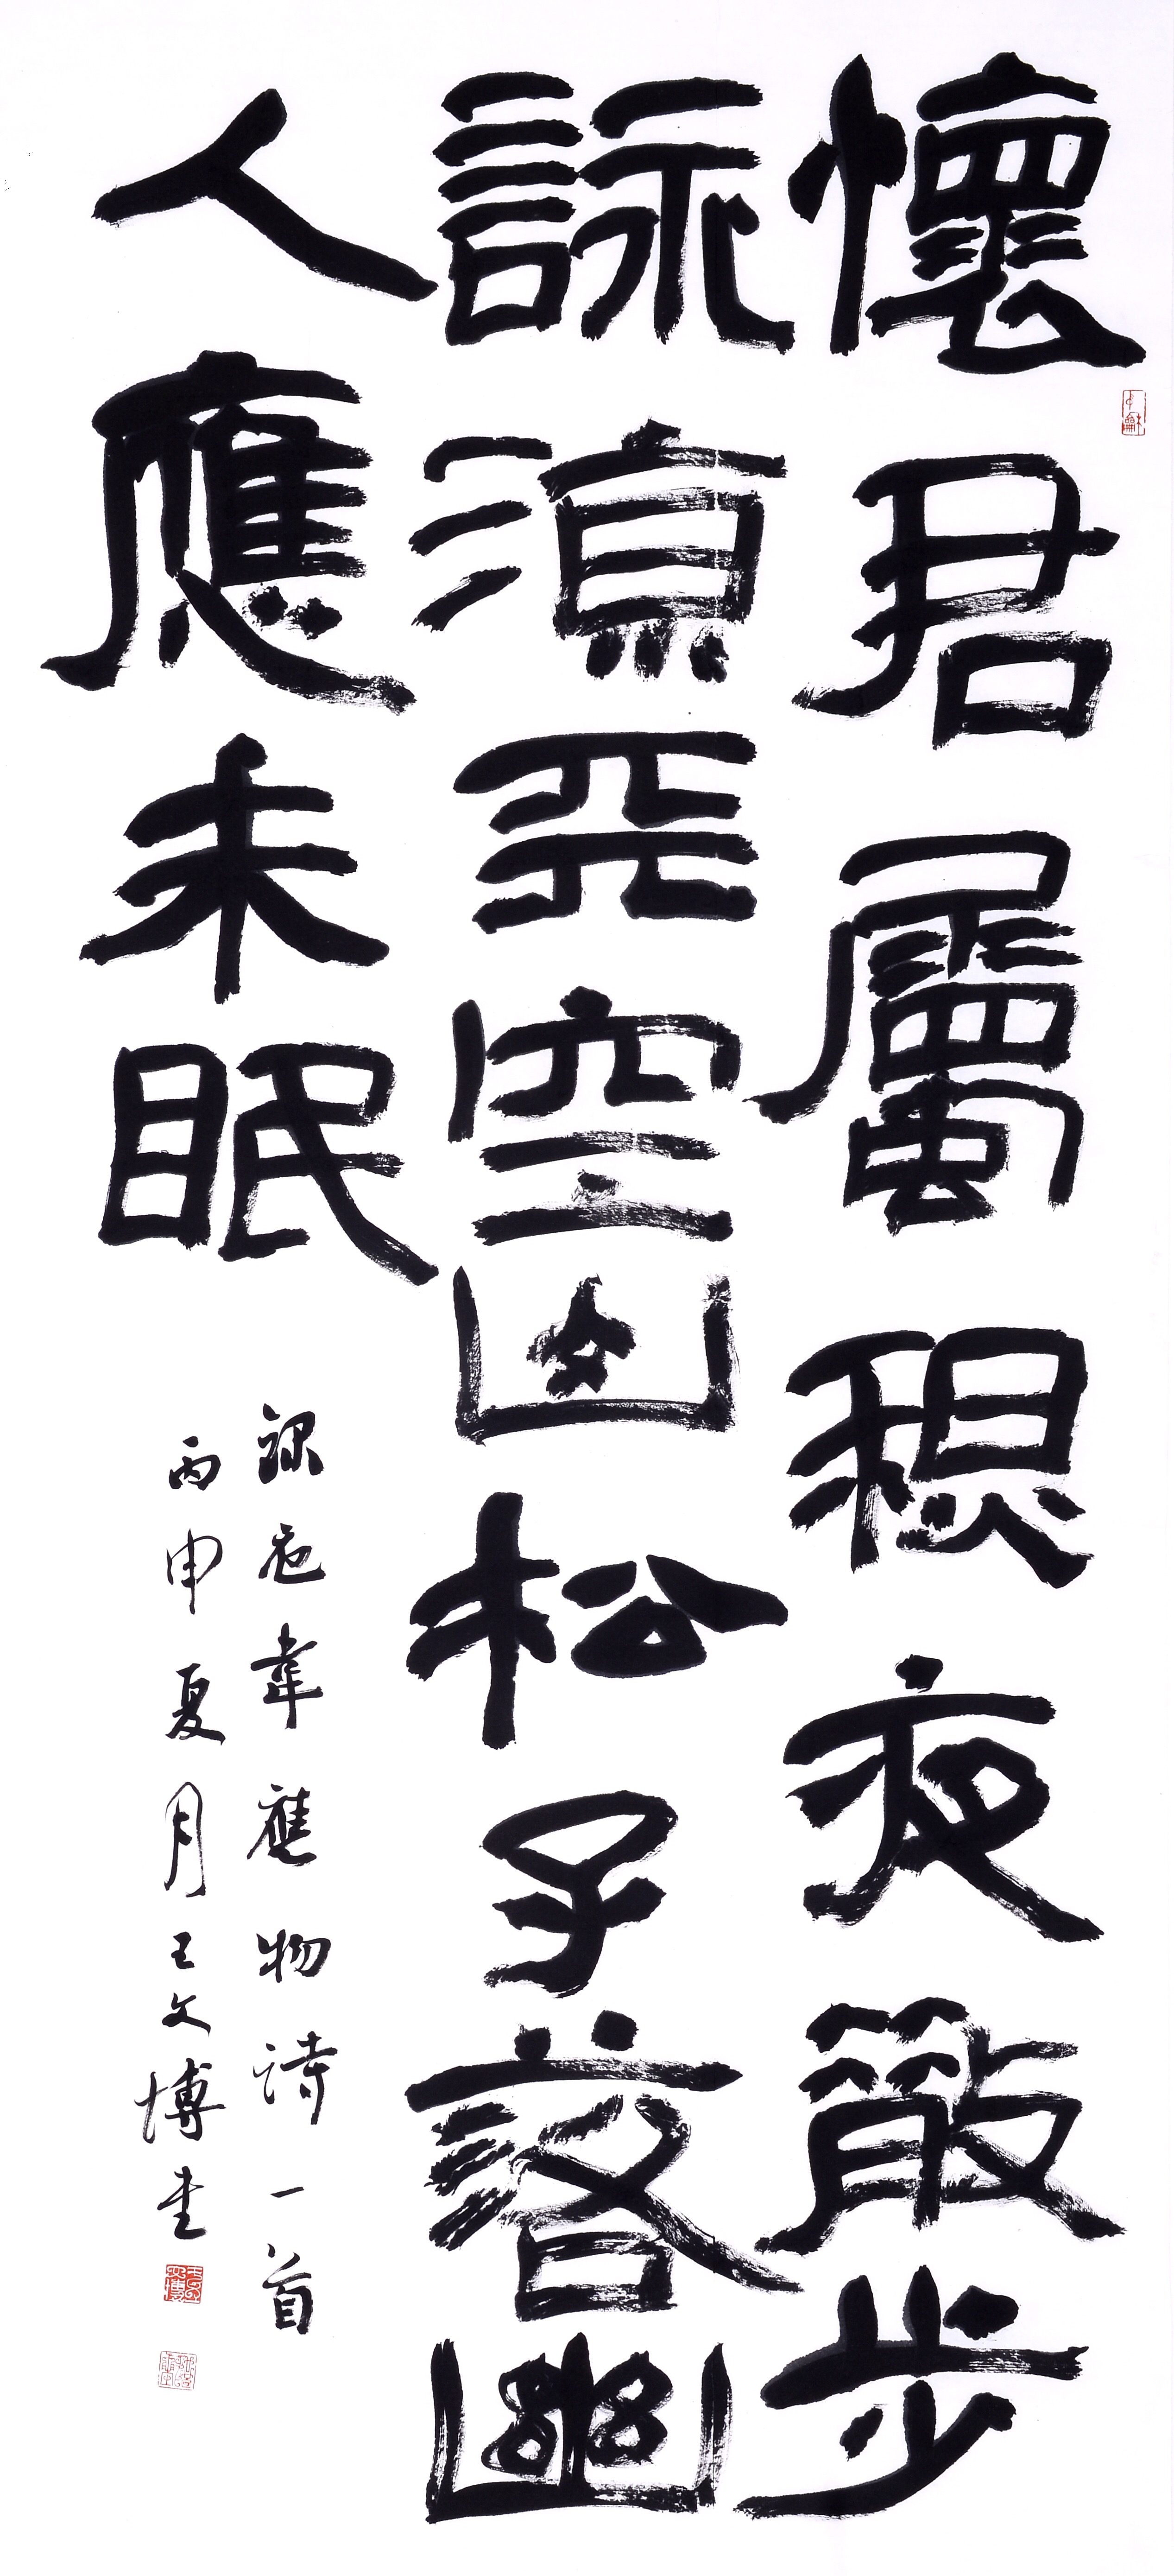 懷君屬秋夜散步
詠涼天空山松子落幽
人應未眠
錄唐韋應物詩一首
丙申夏月王文博書